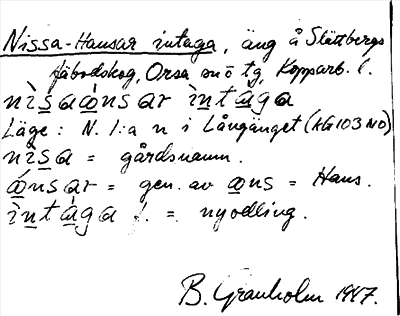 Nissa-Hansar intaga, äng å Slättbergs
fäbodskog, Orsa snö tg, Kopparb. l.
nìsaɷ́nsar ìntàga
Läge: N. l:a n i Långänget (KG103NO)
nìsa = gårdsnamn.
ɷ́nsar = gen. av ɷns = Hans.
ìntàga f. = nyodling.
B. Granholm 1947.